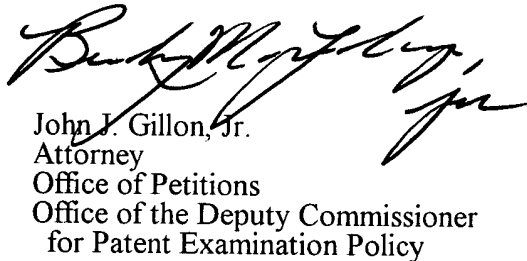 John J. Gillon, Jr.
Attorney
Office of Petitions
Office of the Deputy Commissioner
for Patent Examination Policy